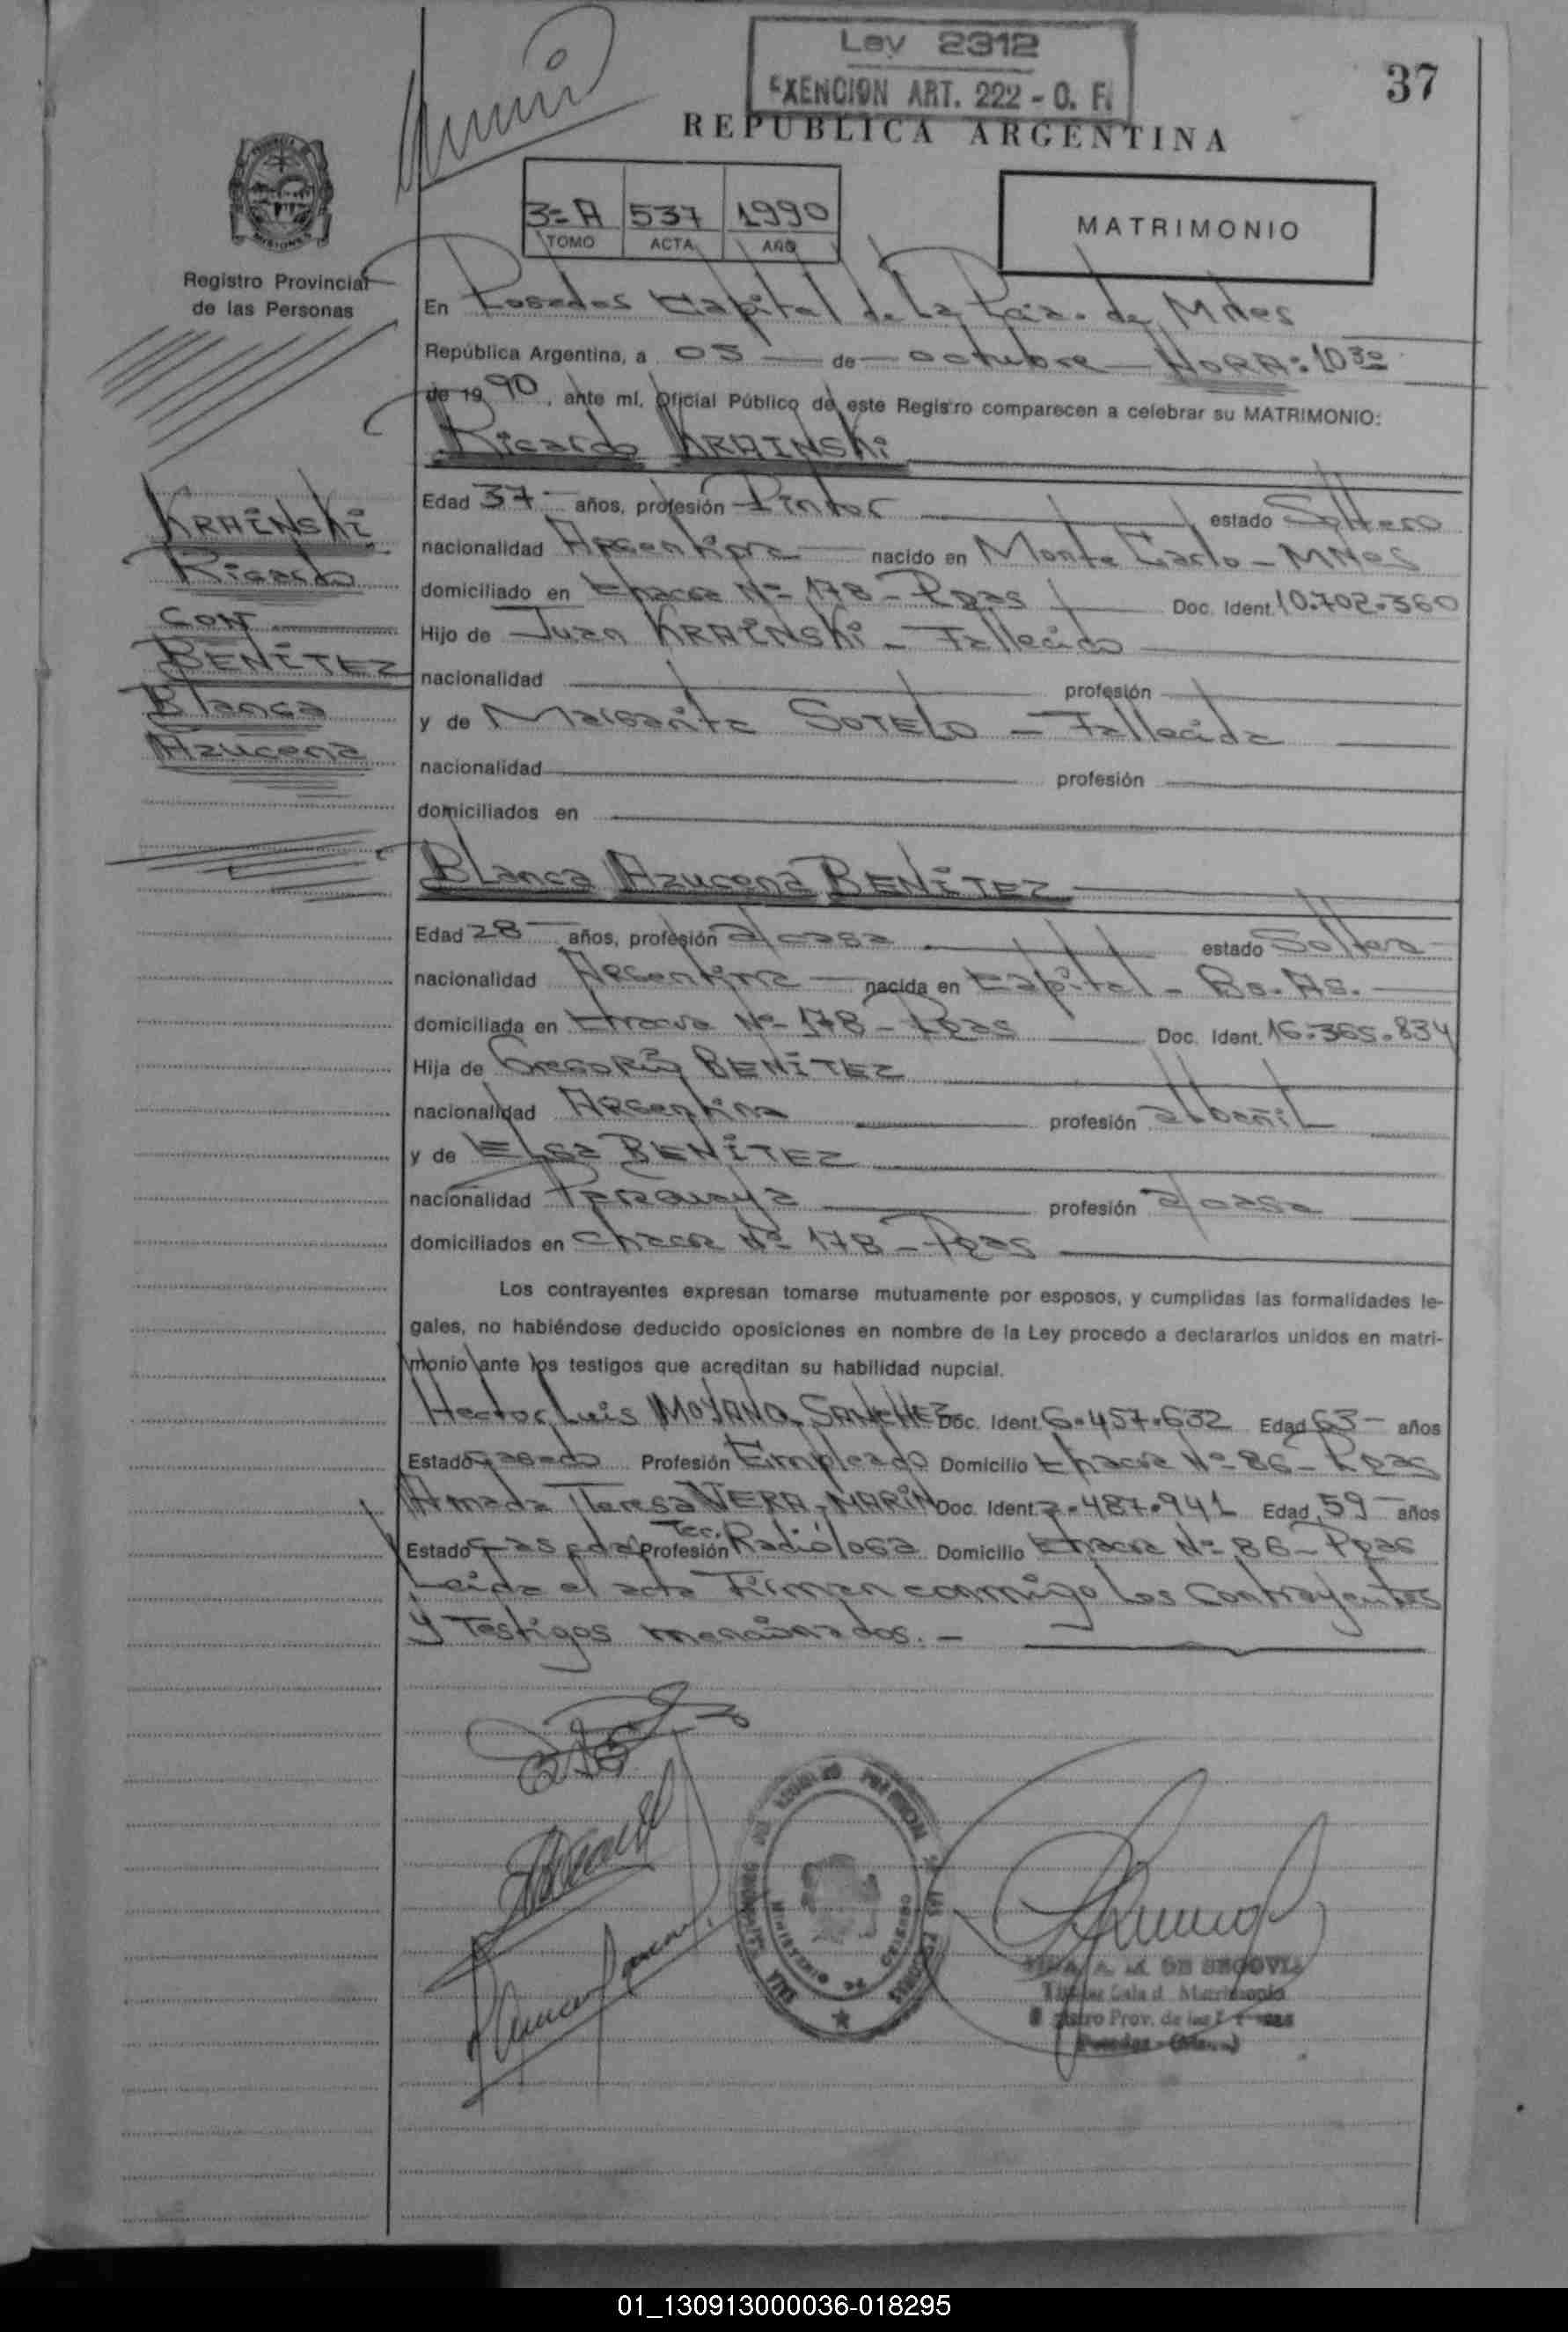 Ley 2312
EXENCION ART. 222 - O. F.
37
REPUBLICA ARGENTINA
3=A 537 1990
TOMO ACTA AÑO
MATRIMONIO
MISIONES
Registro Provincial
de las Personas
En Posadas Capital de La Pcia. de Mnes
República Argentina, a 05 de octubre HORA: 10 30
de 1990, ante mí, Oficial Público de este Registro comparecen a celebrar su MATRIMONIO:
Ricardo KRAINSKi
KRAINSKi
Ricardo
CON
BENITEZ
Blanca
Azucena
Edad 37 años, profesión Pintor estado Soltero
nacionalidad Argentina nacido en Monte Carlo - MNes
domiciliado en Chacra Nº 178 - Pdas Doc. Ident. 10.702.360
Hijo de Juan KRAINSKi - Fallecido
nacionalidad profesión
y de Margarita SOTELO - Fallecida
nacionalidad profesión
domiciliados en
Blanca Azucena BENITEZ
Edad 28 años, profesión a/casa estado Soltera
nacionalidad Argentina nacida en Capital - Bs. As.
domiciliada en Chacra Nº 178 - Pdas Doc. Ident. 16.365.834
Hija de Gregorio BENITEZ
nacionalidad Argentina profesión albañil
y de Elsa BENITEZ
nacionalidad Paraguaya profesión a/casa
domiciliados en Chacra Nº 178 - Pdas
Los contrayentes expresan tomarse mutuamente por esposos, y cumplidas las formalidades le-
gales, no habiéndose deducido oposiciones en nombre de la Ley procedo a declararlos unidos en matri-
monio ante los testigos que acreditan su habilidad nupcial.
Hector Luis MOYANO SANCHEZ Doc. Ident. 6.457.632 Edad 63 años
Estado Casado Profesión Empleado Domicilio Chacra Nº 86 - Pdas
Amada Teresa VERA - MARIN Doc. Ident. 2.487.941 Edad 59 años
Estado Casada Profesión Tec. Radióloga Domicilio Chacra Nº 86 - Pdas
Leida el acta Firman conmigo los Contrayentes
y Testigos mencionados. -
MINISTERIO DE GOBIERNO
A. M. DE SEGOVIA
Sala d. Matrimonio
Prov. de las
01_130913000036-018295